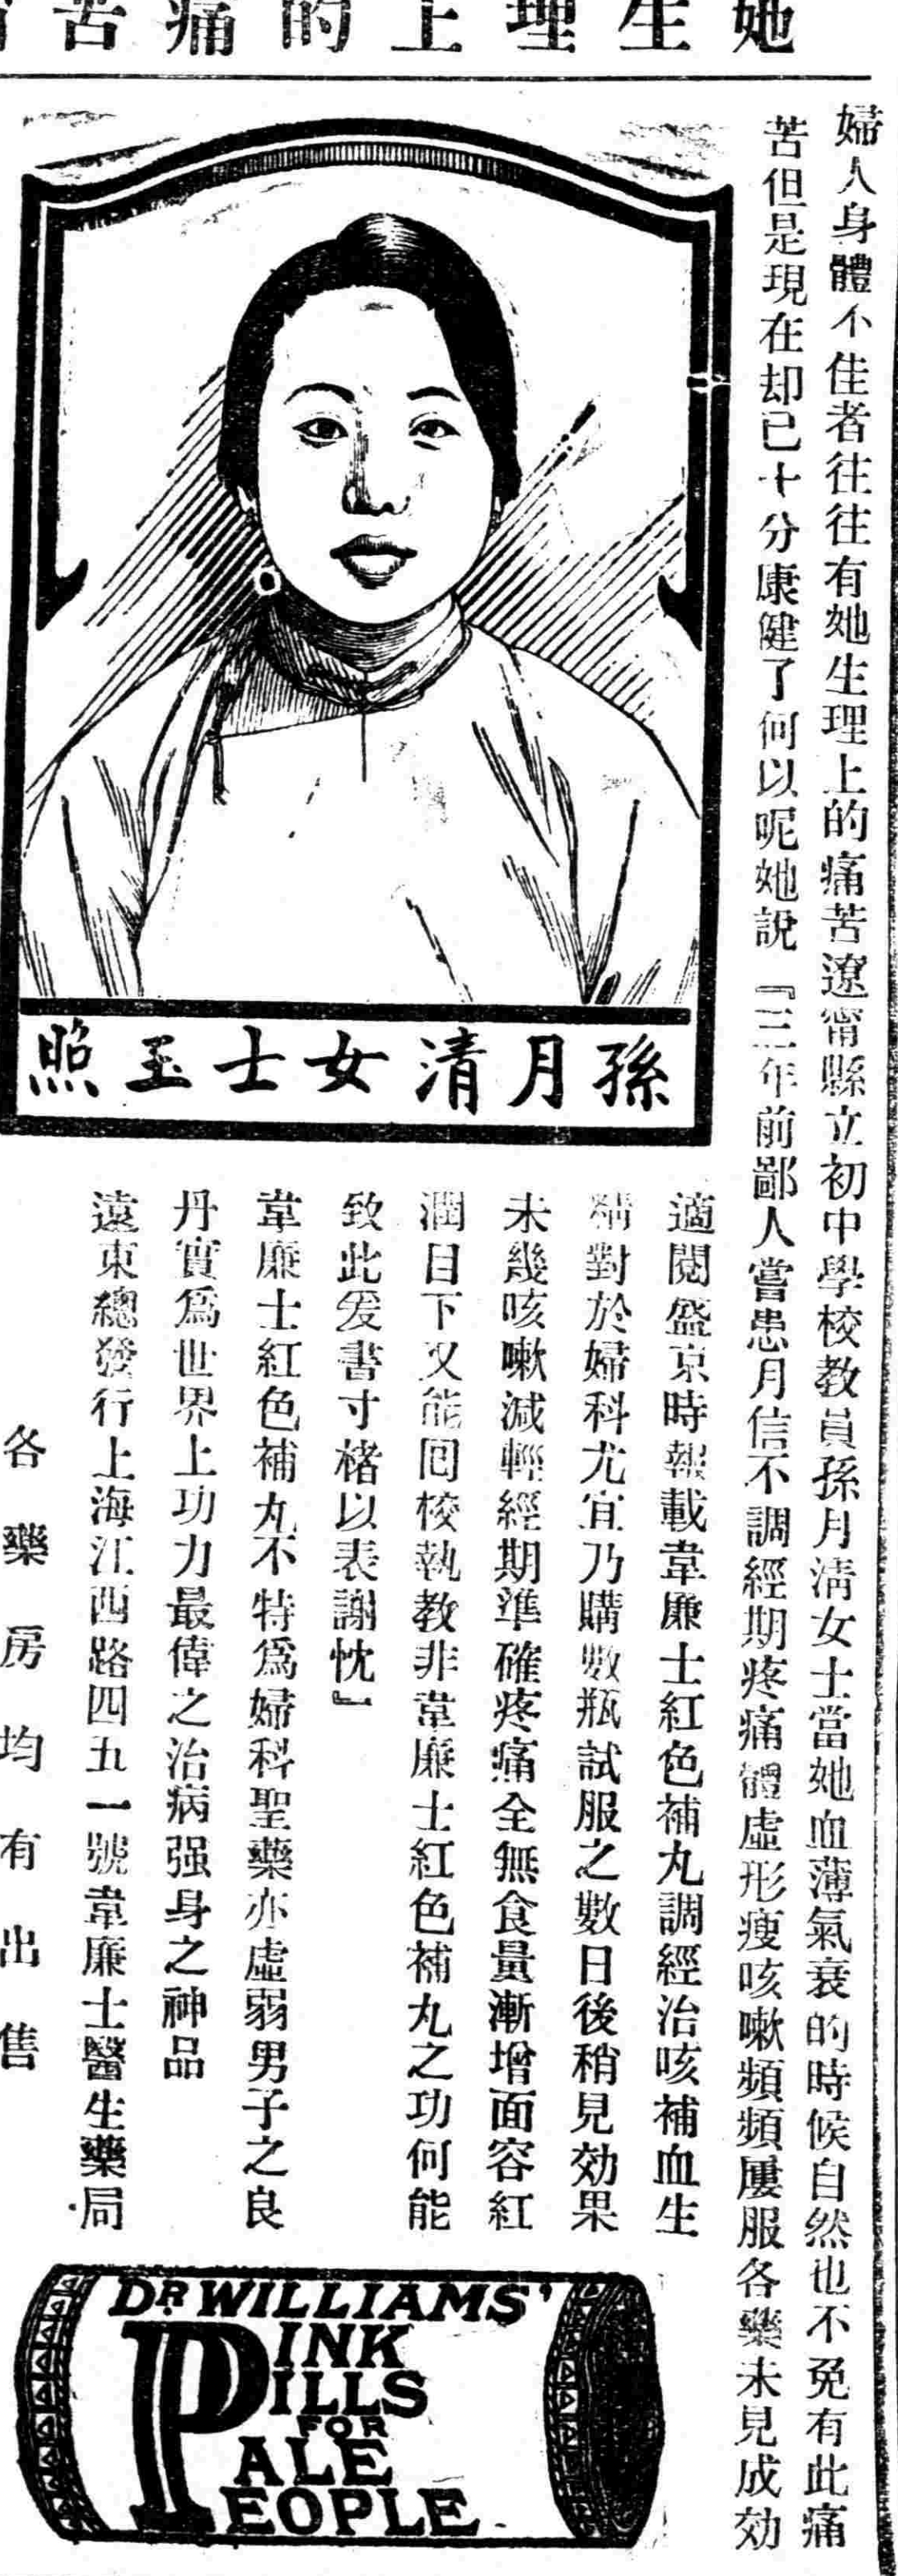 她生理上的痛苦
婦人身體不佳者往往有她生理上的痛苦遼甯縣立初中學校教員孫月清女士當她血薄氣衰的時候自然也不免有此痛
苦但是現在却已十分康健了何以呢她說『三年前鄙人嘗患月信不調經期疼痛體虛形瘦咳嗽頻頻屢服各藥未見成効
適閱盛京時報載韋廉士紅色補丸調經治咳補血生
精對於婦科尤宜乃購數瓶試服之數日後稍見効果
未幾咳嗽減輕經期準確疼痛全無食量漸增面容紅
潤目下又能回校執教非韋廉士紅色補丸之功何能
致此爰書寸楮以表謝忱』
韋廉士紅色補丸不特爲婦科聖藥亦虛弱男子之良
丹實爲世界上功力最偉之治病强身之神品
遠東總發行上海江西路四五一號韋廉士醫生藥局
各藥房均有出售
孫月清女士玉照
DR WILLIAMS'
PINK
PILLS
FOR
PALE
PEOPLE